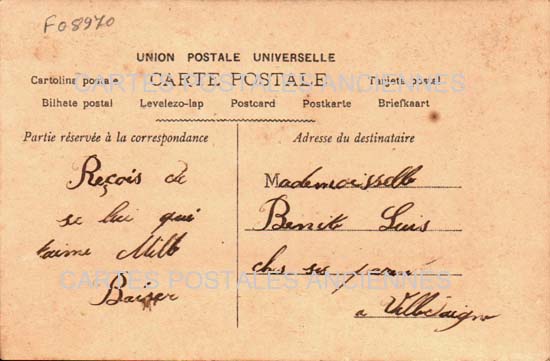 F08970
UNION POSTALE UNIVERSELLE
Cartolina postale CARTE POSTALE Tarjeta postal
CARTES POSTALES ANCIENNES
Bilhete postal Levelezo-lap Postcard Postkarte Briefkaart
Partie réservée à la correspondance
Reçois de
se lui qui
t'aime Mille
Baiser
CARTES POSTALES ANCIENNES
Adresse du destinataire
Mademoisselle
Benoit Luis
chs se
a